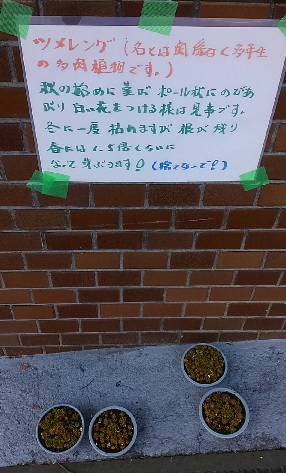 ツメレンゲ(名とは関係なく多年生
の多肉植物です。)
秋の始めに茎がポール状にのびあ
がり白い花をつける様は見事です。
冬に一度枯れますが根が残り
春には1.5倍くらいに
なって芽ぶきます!(捨てないで!)